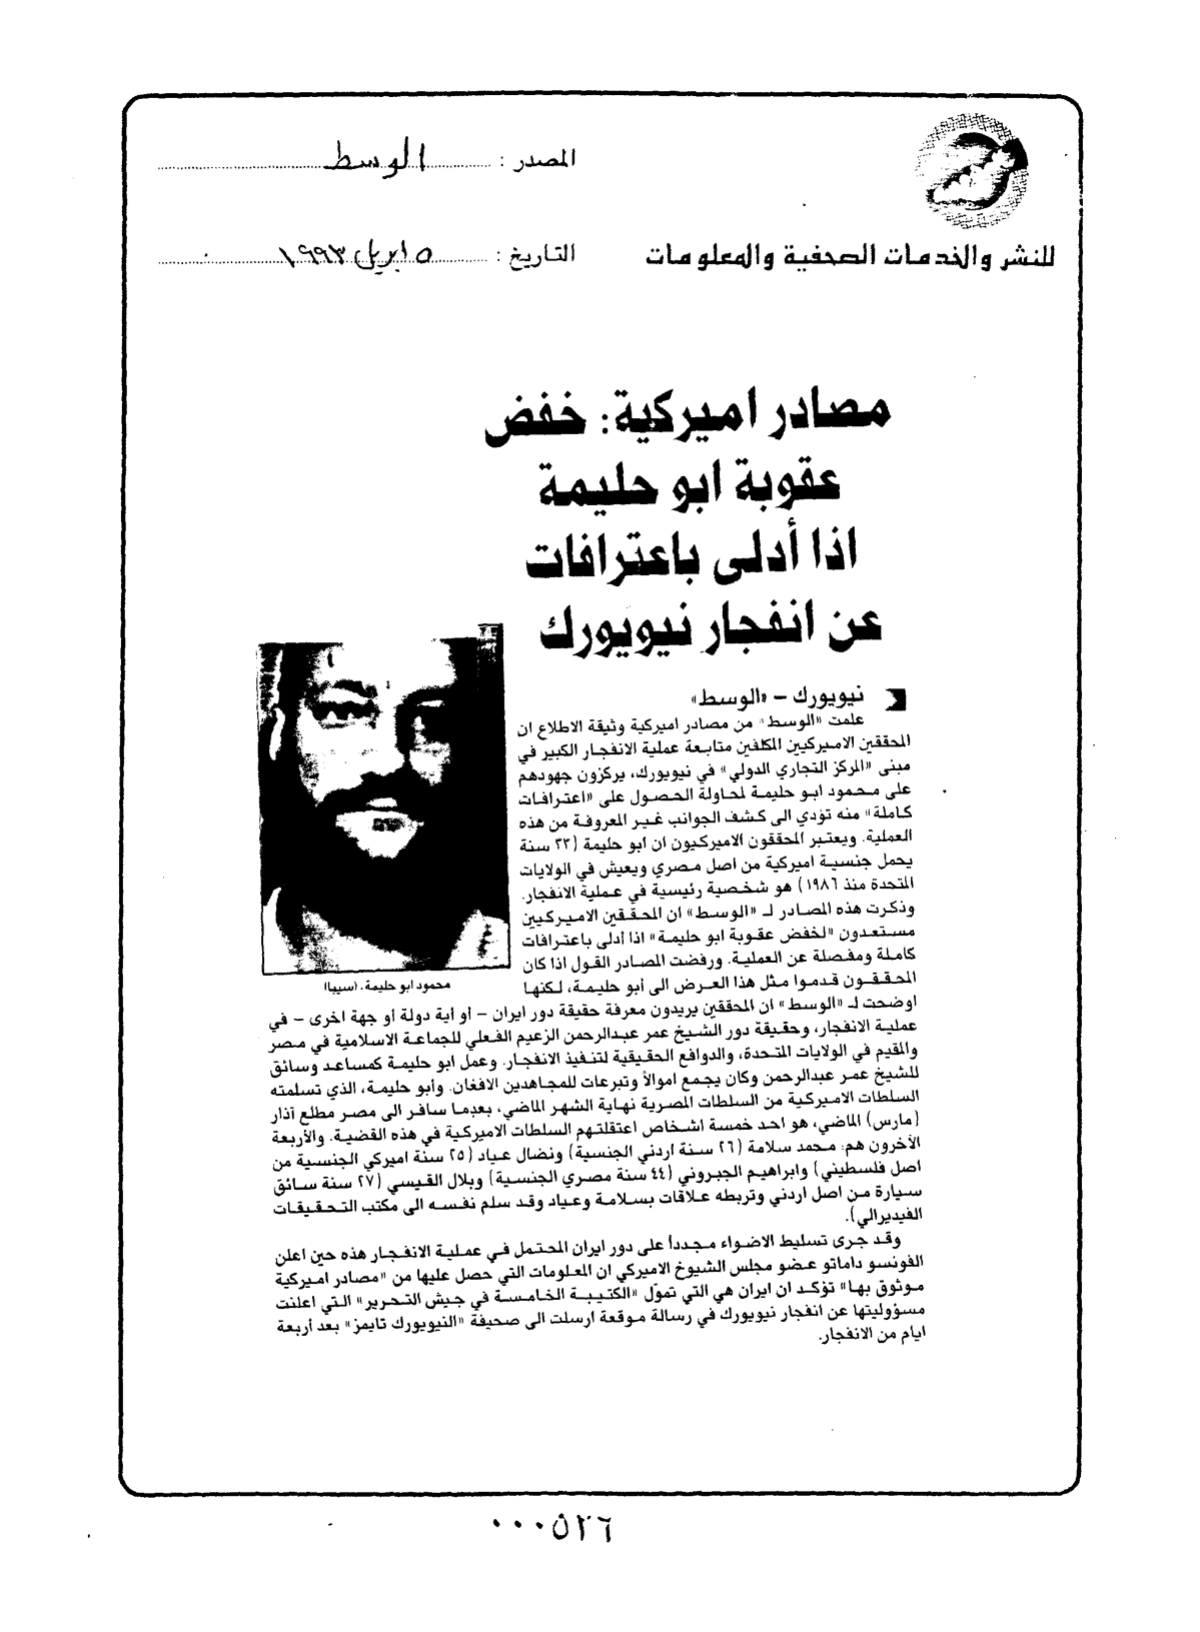 المصدر : الوسط
للنشر والخدمات الصحفية والمعلومات
التاريخ : ٥ ابريل ١٩٩٣
مصادر اميركية: خفض
عقوبة ابو حليمة
اذا أدلى باعترافات
عن انفجار نيويورك
نيويورك – «الوسط»
علمت «الوسط» من مصادر اميركية وثيقة الاطلاع ان
المحققين الاميركيين المكلفين متابعة عملية الانفجار الكبير في
مبنى «المركز التجاري الدولي» في نيويورك، يركزون جهودهم
على محمود ابو حليمة لمحاولة الحصول على «اعترافات
كاملة» منه تؤدي الى كشف الجوانب غير المعروفة من هذه
العملية. ويعتبر المحققون الاميركيون ان ابو حليمة (٣٣ سنة
يحمل جنسية اميركية من اصل مصري ويعيش في الولايات
المتحدة منذ ١٩٨٦) هو شخصية رئيسية في عملية الانفجار.
وذكرت هذه المصادر لـ «الوسط» ان المحققين الاميركيين
مستعدون «لخفض عقوبة ابو حليمة» اذا أدلى باعترافات
كاملة ومفصلة عن العملية. ورفضت المصادر القول اذا كان
المحققون قدموا مثل هذا العرض الى أبو حليمة، لكنها
محمود ابو حليمة. (سيبا)
اوضحت لـ «الوسط» ان المحققين يريدون معرفة حقيقة دور ايران – أو أية دولة أو جهة اخرى – في
عملية الانفجار، وحقيقة دور الشيخ عمر عبدالرحمن الزعيم الفعلي للجماعة الاسلامية في مصر
والمقيم في الولايات المتحدة، والدوافع الحقيقية لتنفيذ الانفجار. وعمل ابو حليمة كمساعد وسائق
للشيخ عمر عبدالرحمن وكان يجمع اموالاً وتبرعات للمجاهدين الافغان. وأبو حليمة، الذي تسلمته
السلطات الاميركية من السلطات المصرية نهاية الشهر الماضي، بعدما سافر الى مصر مطلع آذار
(مارس) الماضي، هو احد خمسة اشخاص اعتقلتهم السلطات الاميركية في هذه القضية. والأربعة
الآخرون هم: محمد سلامة (٢٦ سنة اردني الجنسية) ونضال عياد (٢٥ سنة اميركي الجنسية من
اصل فلسطيني) وابراهيم الجبروني (٤٤ سنة مصري الجنسية) وبلال القيسي (٢٧ سنة سائق
سيارة من اصل اردني وتربطه علاقات بسلامة وعياد وقد سلم نفسه الى مكتب التحقيقات
الفيديرالي).
وقد جرى تسليط الاضواء مجدداً على دور ايران المحتمل في عملية الانفجار هذه حين اعلن
الفونسو داماتو عضو مجلس الشيوخ الاميركي ان المعلومات التي حصل عليها من «مصادر اميركية
موثوق بها» تؤكد ان ايران هي التي تموّل «الكتيبة الخامسة في جيش التحرير» التي اعلنت
مسؤوليتها عن انفجار نيويورك في رسالة موقعة ارسلت الى صحيفة «النيويورك تايمز» بعد أربعة
ايام من الانفجار.
٠٠٠٥٢٦